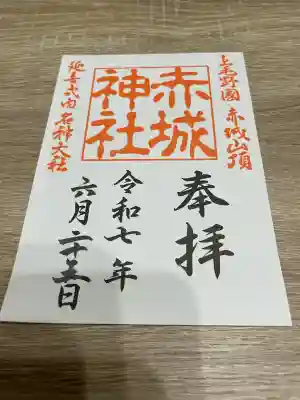 上毛野國 赤城山頂
奉拝
赤城
神社
令和七年
六月二十五日
延喜式内 名神大社